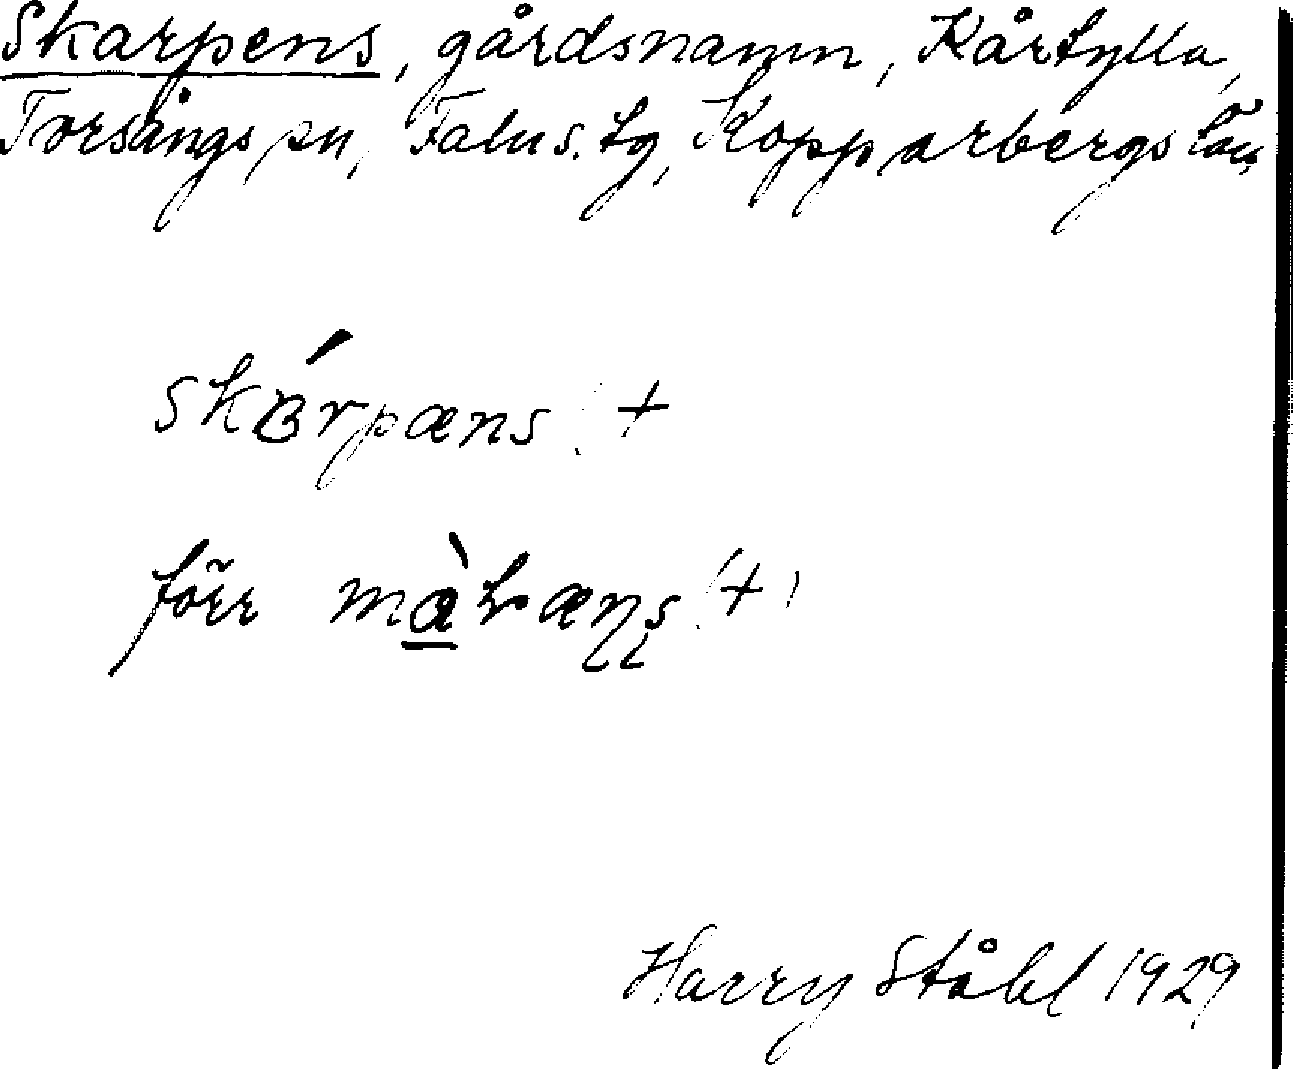 Skarpens, gårdsnamn, Kårtylla,
Torsångs sn, Falu s. tg, Kopparbergs län,
skɐ́rpæns +
förr (+)
Harry Ståhl 1929